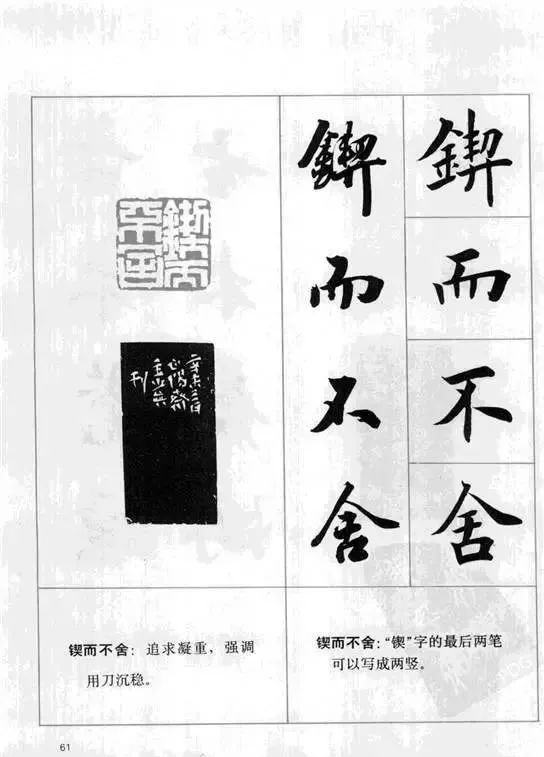 鍥而不舍
鍥而不舍
鍥而不舍
辛未三百
王少英
刊
锲而不舍：追求凝重，强调
用刀沉稳。
锲而不舍：“锲”字的最后两笔
可以写成两竖。
61